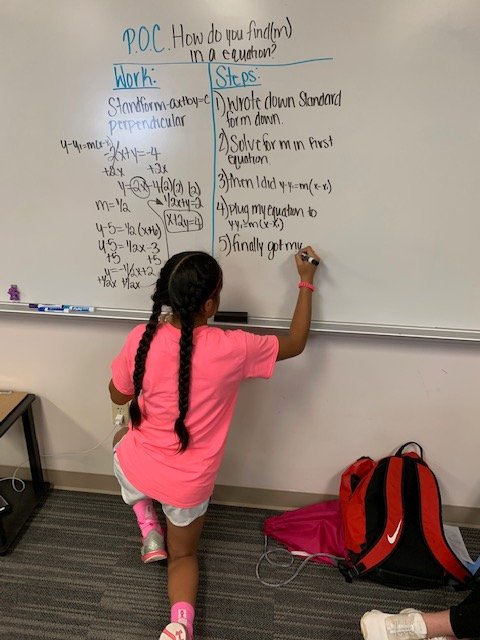 P.O.C. How do you find(m)
in a equation?
Work:
Standform-ax+by=c
perpendicular
y-y₁=m(x-x₁)
-2x+y=-4
+2x +2x
y=2x-4(2)(2) (2)
1/2x+y=2
m=1/2
x+2y=4
y-5=1/2(x+6)
y-5=1/2x-3
+5 +5
y=-1/2x+2
+1/2x +1/2x
Steps:
1) Wrote down Standard
form down.
2) Solve for m in first
equation.
3) then I did y-y₁=m(x-x₁)
4) plug my equation to
y-y₁=m(x-x₁)
5) finally got my